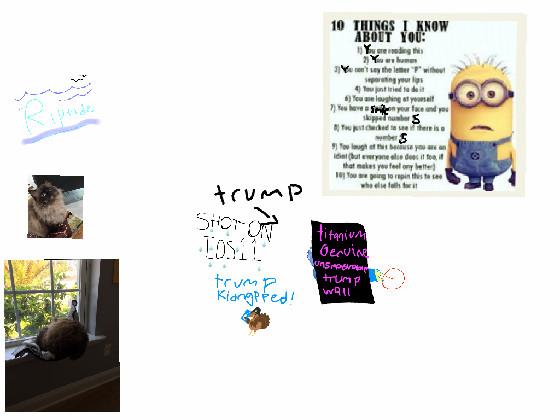 10 THINGS I KNOW
ABOUT YOU:
1) You are reading this
2) You are human
3) You can't say the letter "P" without
separating your lips
4) You just tried to do it
6) You are laughing at yourself
7) You have a on your face and you
skipped number 5
8) You just checked to see if there is a
number 5
9) You laugh at this because you are an
idiot (but everyone else does it too, if
that makes you feel any better)
10) You are going to repin this to see
who else falls for it
Riptide
trump
SHOT ON
IOS11
trump
kidnapped!
titanium
Genuine
trump
wall